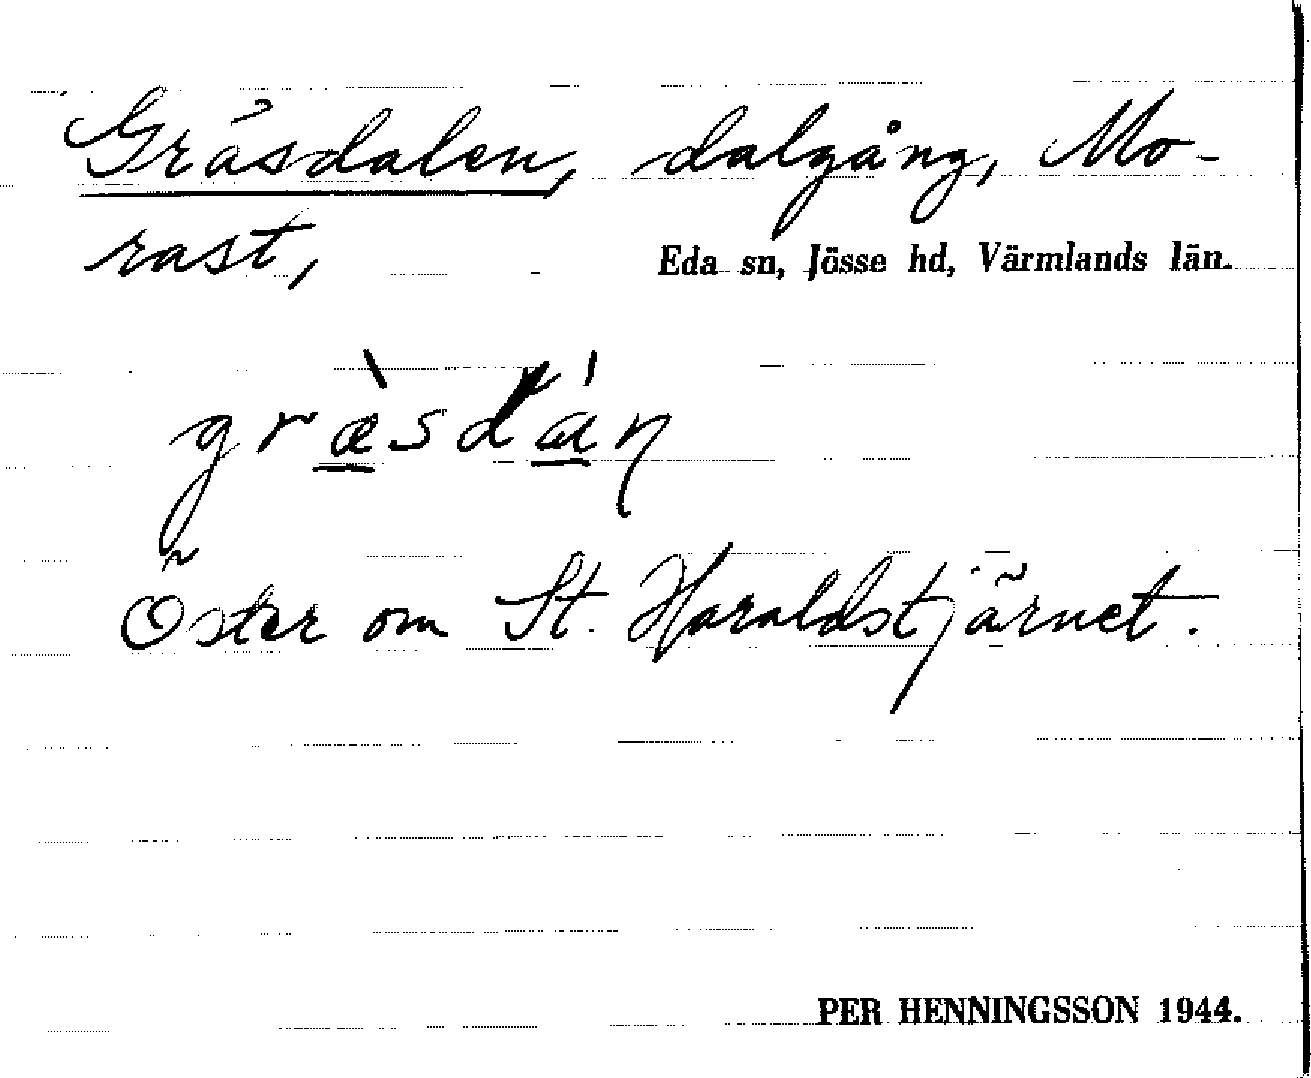 Gräsdalen, dalgång, Mo-
rast, Eda sn, Jösse hd, Värmlands län.
græ̀sdán
Öster om St. Haraldstjärnet.
PER HENNINGSSON 1944.